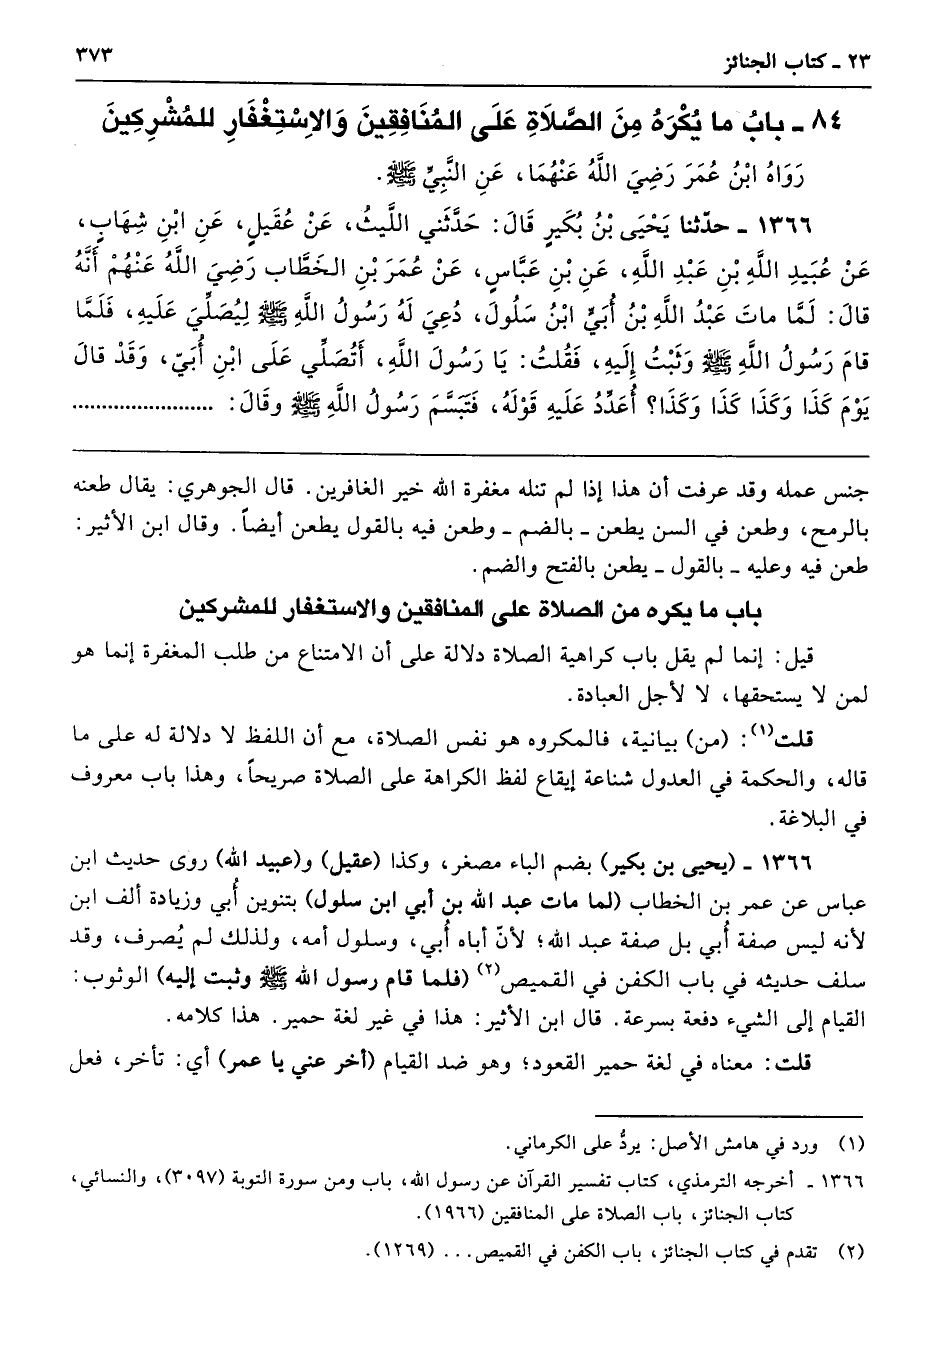 ٢٣ ـ كتاب الجنائز
٣٧٣
٨٤ ـ بابُ ما يُكْرَهُ مِنَ الصَّلَاةِ عَلَى المُنَافِقِينَ وَالاِسْتِغْفَارِ للمُشْرِكِينَ
رَوَاهُ ابْنُ عُمَرَ رَضِيَ اللَّهُ عَنْهُمَا، عَنِ النَّبِيِّ ﷺ.
١٣٦٦ ـ حدّثنا يَحْيَى بْنُ بُكَيرٍ قَالَ: حَدَّثَني اللَّيثُ، عَنْ عُقَيلٍ، عَنِ ابْنِ شِهَابٍ،
عَنْ عُبَيدِ اللَّهِ بْنِ عَبْدِ اللَّهِ، عَنِ بْنِ عَبَّاسٍ، عَنْ عُمَرَ بْنِ الخَطَّاب رَضِيَ اللَّهُ عَنْهُمْ أَنَّهُ
قالَ: لَمَّا ماتَ عَبْدُ اللَّهِ بْنُ أُبَيٍّ ابْنُ سَلُولَ، دُعِيَ لَهُ رَسُولُ اللَّهِ ﷺ لِيُصَلِّيَ عَلَيهِ، فَلَمَّا
قامَ رَسُولُ اللَّهِ ﷺ وَثَبْتُ إِلَيهِ، فَقُلتُ: يَا رَسُولَ اللَّهِ، أَتُصَلِّي عَلَى ابْنِ أُبَيّ، وَقَدْ قالَ
يَوْمَ كَذَا وَكَذَا كَذَا وَكَذَا؟ أُعَدِّدُ عَلَيهِ قَوْلَهُ، فَتَبَسَّمَ رَسُولُ اللَّهِ ﷺ وقَالَ: ........................
جنس عمله وقد عرفت أن هذا إذا لم تنله مغفرة الله خير الغافرين. قال الجوهري: يقال طعنه
بالرمح، وطعن في السن يطعن ـ بالضم ـ وطعن فيه بالقول يطعن أيضاً. وقال ابن الأثير:
طعن فيه وعليه ـ بالقول ـ يطعن بالفتح والضم.
باب ما يكره من الصلاة على المنافقين والاستغفار للمشركين
قيل: إنما لم يقل باب كراهية الصلاة دلالة على أن الامتناع من طلب المغفرة إنما هو
لمن لا يستحقها، لا لأجل العبادة.
قلت(١): (من) بيانية، فالمكروه هو نفس الصلاة، مع أن اللفظ لا دلالة له على ما
قاله، والحكمة في العدول شناعة إيقاع لفظ الكراهة على الصلاة صريحاً، وهذا باب معروف
في البلاغة.
١٣٦٦ ـ (يحيى بن بكير) بضم الباء مصغر، وكذا (عقيل) و(عبيد الله) روى حديث ابن
عباس عن عمر بن الخطاب (لما مات عبد الله بن أبي ابن سلول) بتنوين أُبي وزيادة ألف ابن
لأنه ليس صفة أُبي بل صفة عبد الله؛ لأنّ أباه أُبي، وسلول أمه، ولذلك لم يُصرف، وقد
سلف حديثه في باب الكفن في القميص(٢) (فلما قام رسول الله ﷺ وثبت إليه) الوثوب:
القيام إلى الشيء دفعة بسرعة. قال ابن الأثير: هذا في غير لغة حمير. هذا كلامه.
قلت: معناه في لغة حمير القعود؛ وهو ضد القيام (أخر عني يا عمر) أي: تأخر، فعل
(١) ورد في هامش الأصل: يردُّ على الكرماني.
١٣٦٦ ـ أخرجه الترمذي، كتاب تفسير القرآن عن رسول الله، باب ومن سورة التوبة (٣٠٩٧)، والنسائي،
كتاب الجنائز، باب الصلاة على المنافقين (١٩٦٦).
(٢) تقدم في كتاب الجنائز، باب الكفن في القميص... (١٢٦٩).